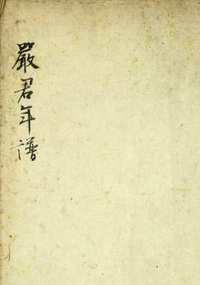 嚴君年譜